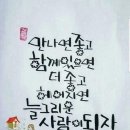 만나면 좋고
함께 있으면
더 좋고
헤어지면
늘 그리운
사람이 되자